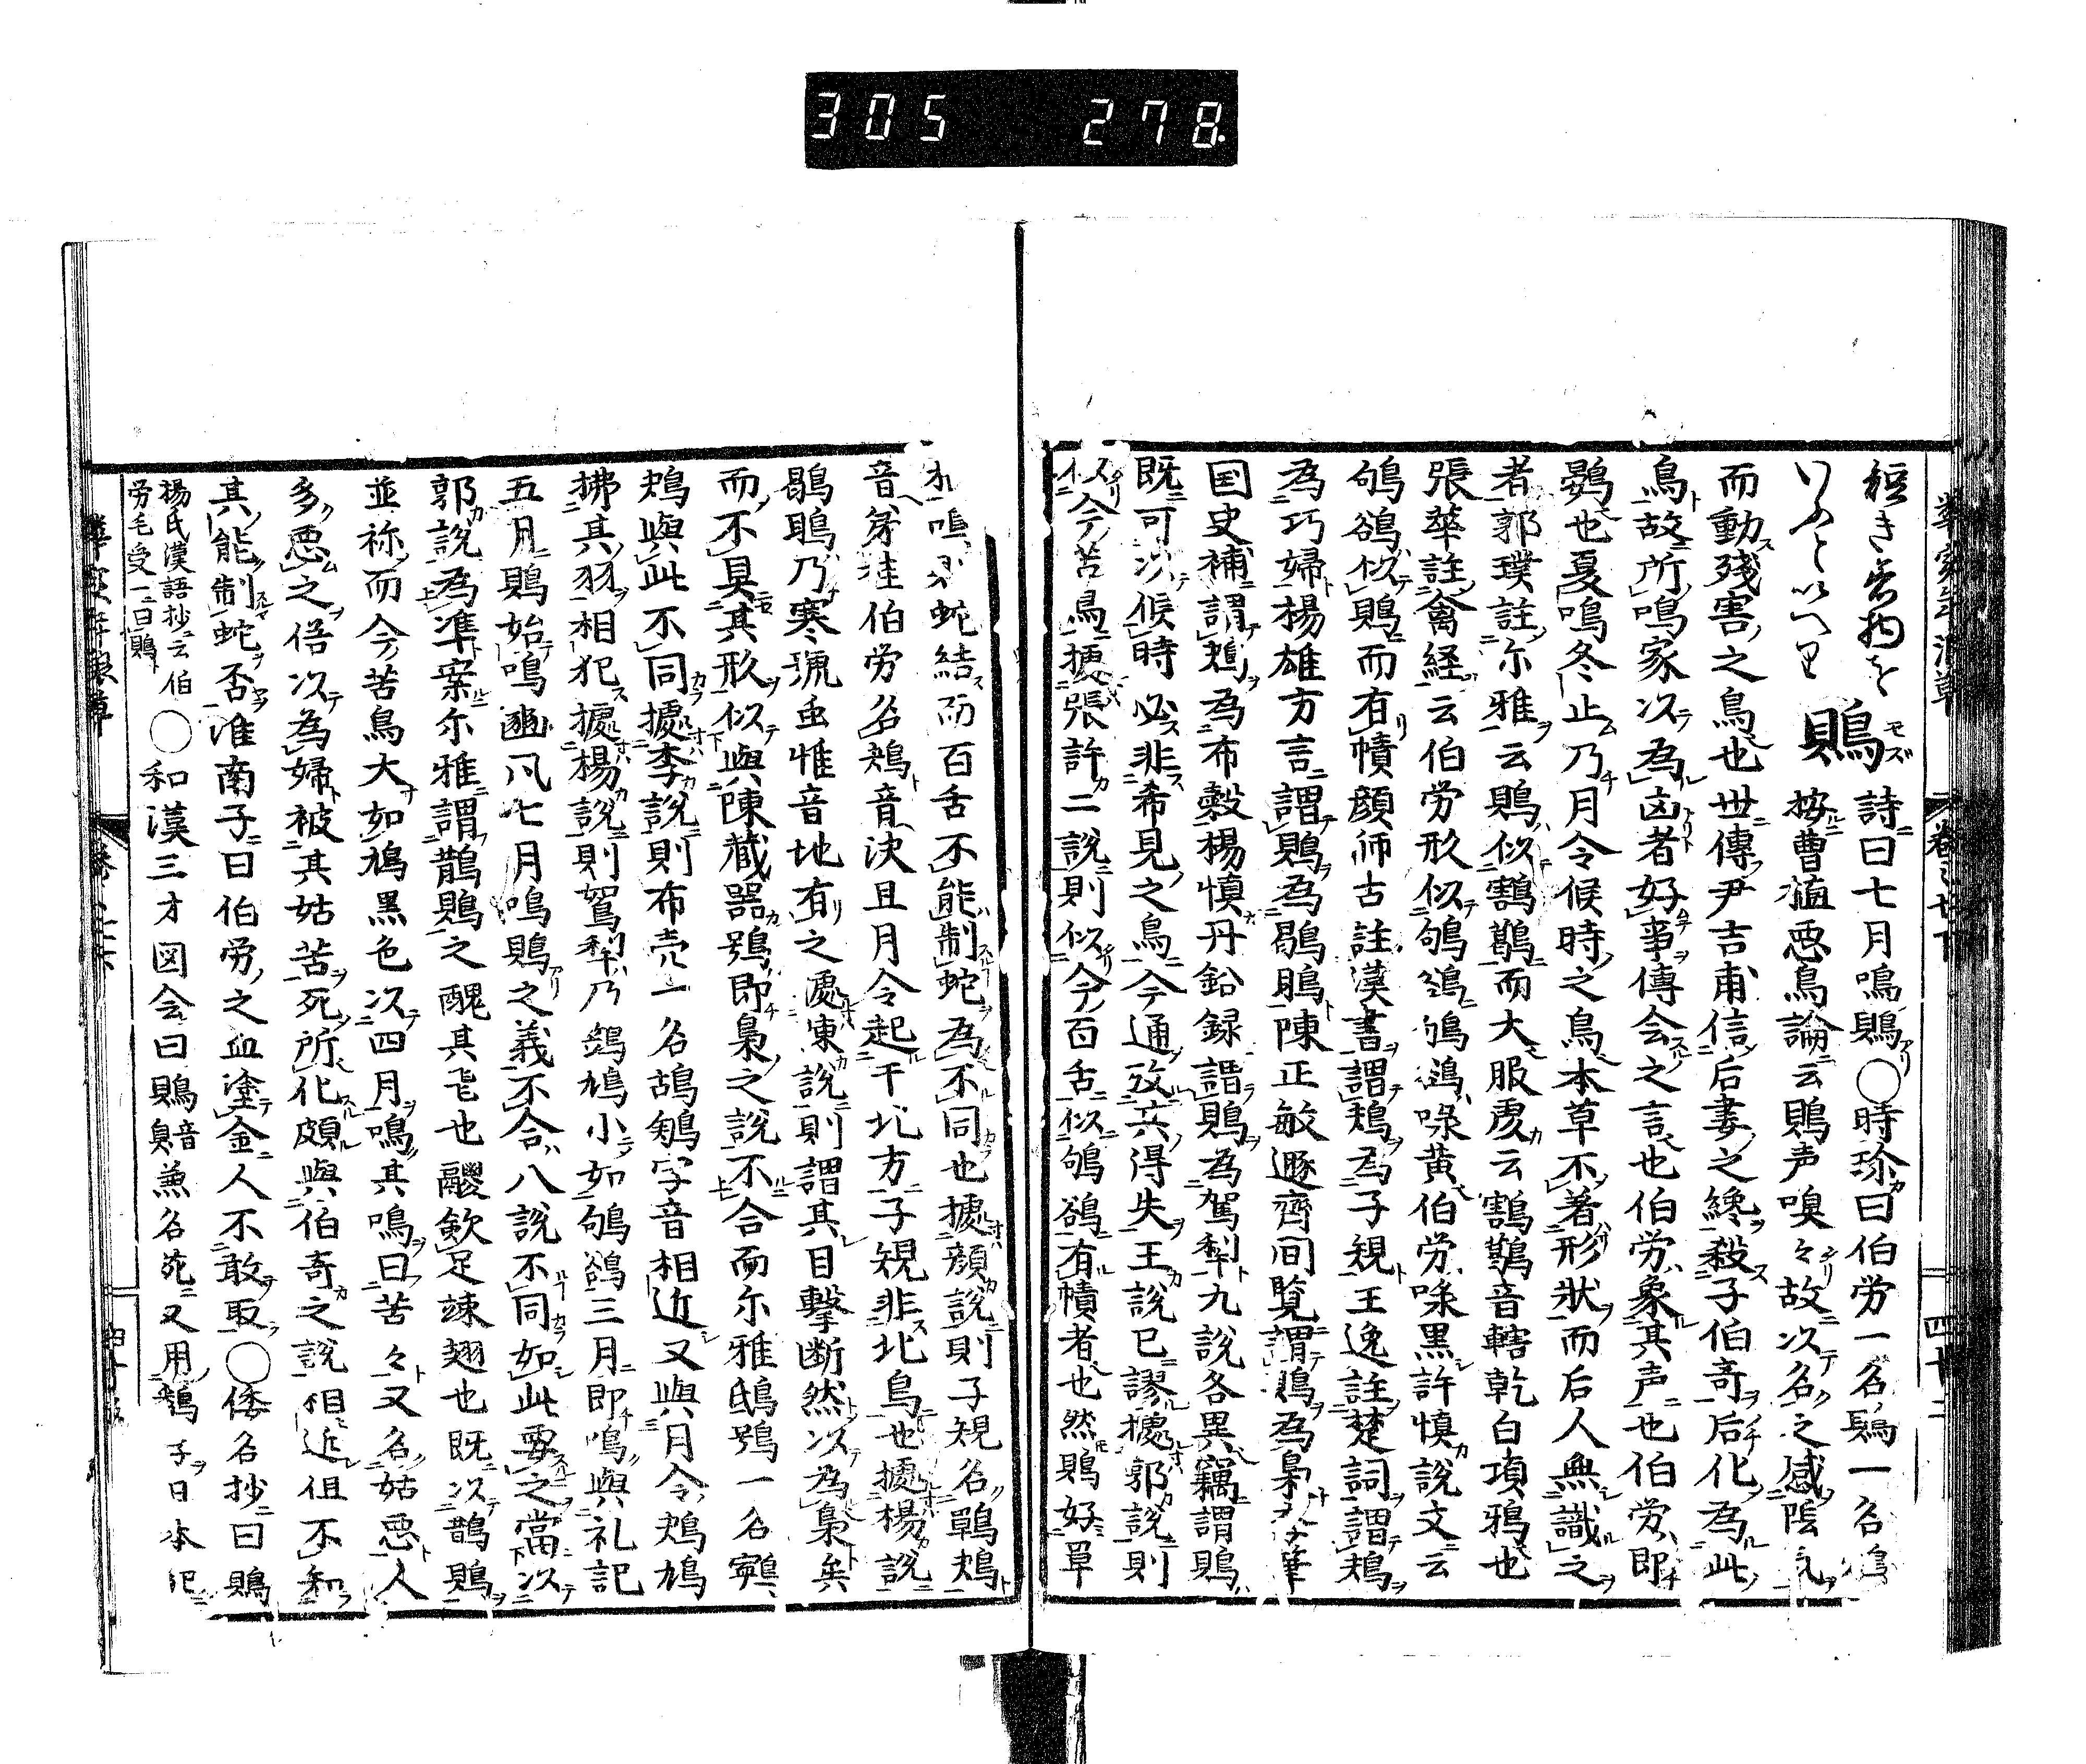 305 278
短き着物を
いふといへり
鵙 モズ 詩曰七月鳴鵙○時珍曰伯労一名鵙一名
按曹植悪鳥論云鵙声嗅々故以名之感陰気
而動残害之鳥也世傳尹吉甫信后妻之纔殺子伯奇后化為此
鳥故所鳴家以為凶者好事傳会之言也伯労象其声也伯労即
鵙也夏鳴冬止乃月令候時之鳥本草不著形状而后人無識之
者郭璞註尓雅云鵙似鶷鶡而大服虔云鶷鶡音轄軋白項鴉也
張華註禽経云伯労形似鴝鵒鴝鵒喙黄伯労喙黒許慎説文云
鴝鵒似鵙而有幘顔師古註漢書謂鴂為子規王逸註楚詞謂鴂
為巧婦楊雄方言謂鵙為鶡鴠陳正敏遯齊間覧謂鵙為梟
国史補謂鴂為布穀楊慎丹鉛録謂鵙為駕犁九説各異竊謂鵙
既可以候時必非希見之鳥今通攷其得失王説已謬據郭説則
似今苦鳥據張許二説則似今百舌似鴝鵒有幘者也然鵙好單
鳴 蛇結而百舌不能制蛇為不同也據顔説則子規名鶗鴂
音 桂伯労名鴂音決且月令起于北方子規非北鳥也據楊説
鶡鴠乃寒號虫惟晉地有之據陳説則謂其目撃断然以為梟矣
而不具其形似與陳蔵器鴞即梟之説不合而尓雅鴟鴞一名鸋
鴂與此不同據李説則布穀一名鴶鵴字音相近又與月令鳲鳩
拂其羽相犯據楊説則駕犁乃鵓鳩小如鴝鵒三月即鳴與礼記
五月鵙始鳴豳風七月鳴鵙之義不合八説不同如此要之當以
郭説為準案尓雅謂鵲鵙之醜其飛也翪歛足竦翅也既以鵲鵙
並称而今苦鳥大如鳩黒色以四月鳴其鳴曰苦々又名姑悪人
多悪之俗以為婦被其姑苦死所化頗與伯奇之説相近但不知
其能制蛇否淮南子曰伯労之血塗金人不敢取○倭名抄曰鵙
楊氏漢語抄云伯
労毛受一曰鵙
○和漢三才図会曰鵙音 兼名苑云又用鵙子日本紀